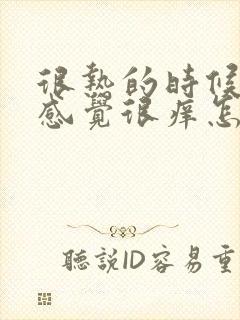 很熱的時候
感覺很痒怎
聽説ID容易重